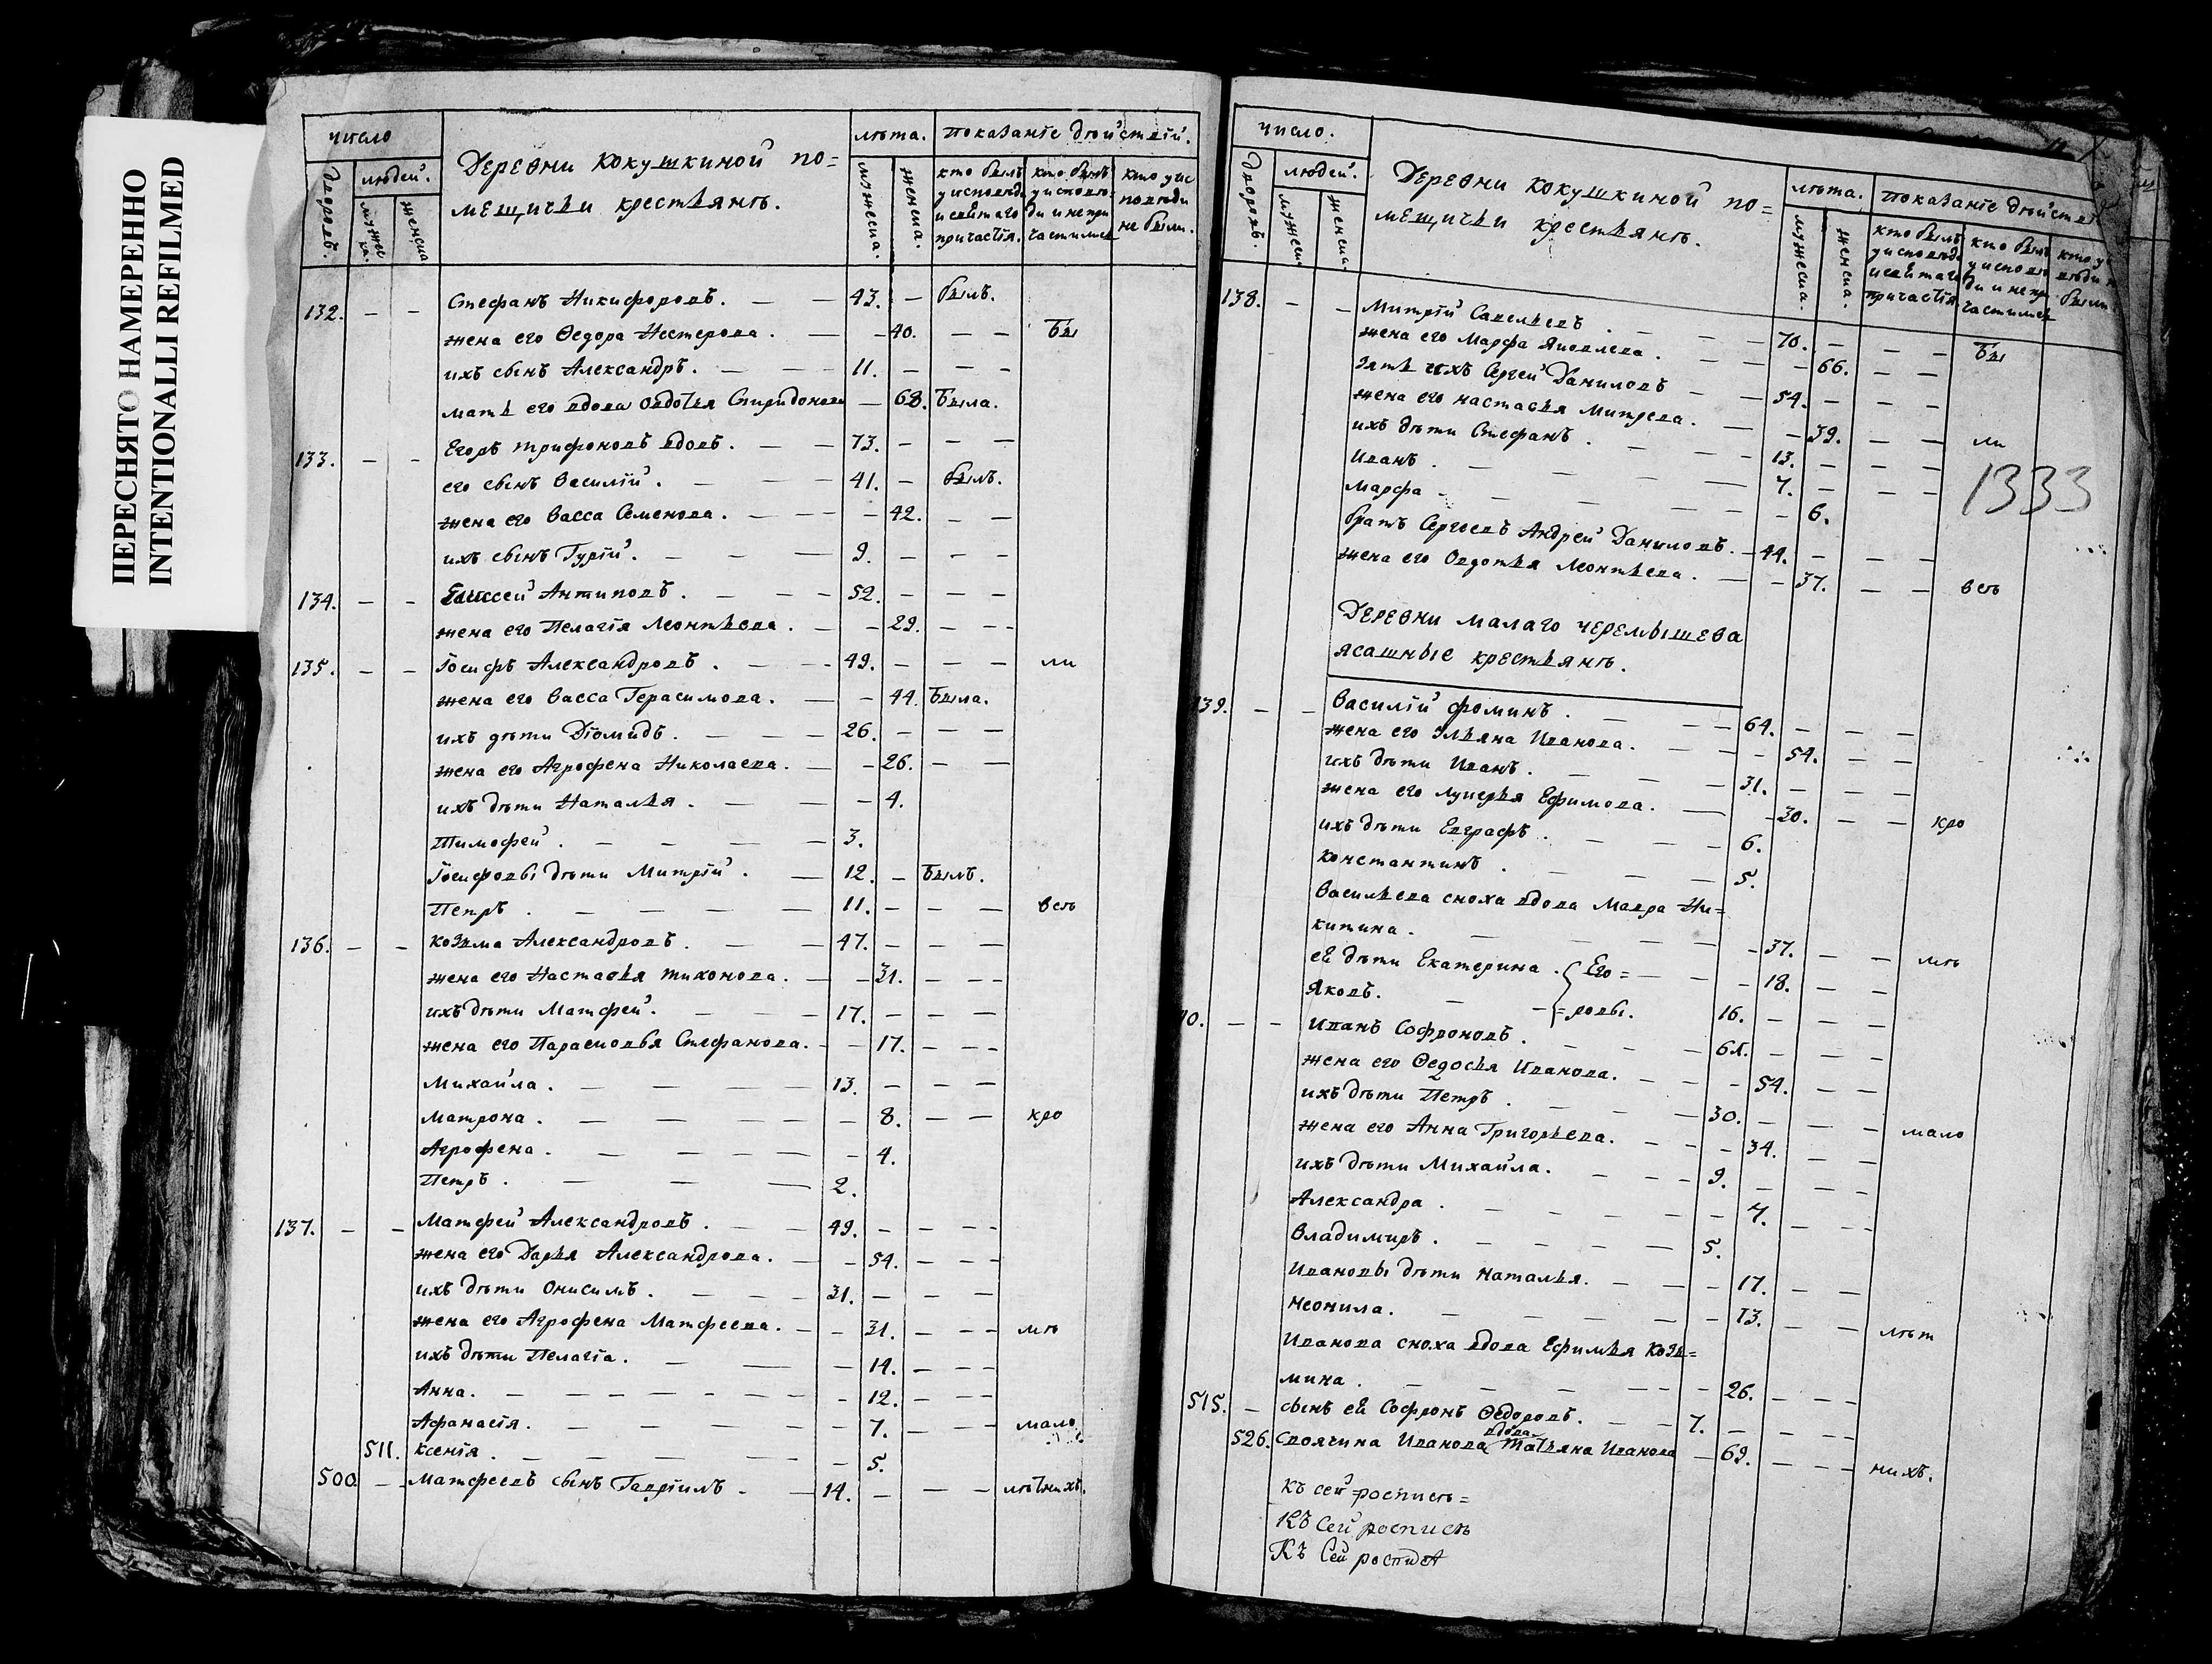 ПЕРЕСНЯТО НАМЕРЕННО
INTENTIONALLI REFILMED
число
людей.
дворовъ.
мужеска.
женска.
Деревни кокушкиной по=
мещичьи крестьянѣ.
лѣта.
мужеска.
женска.
показанiе дѣйствiй.
кто былъ у исповѣди и святаго причастiя.
кто былъ у исповѣди и не причастился
кто у исповѣди не были.
132. — — Стефанъ Никифоровъ. — — 43. — былъ.
жена его Ѳедора Нестерова. — — 40. — — Бы
ихъ сынъ Александръ. — — 11. — — —
мать его вдова Овдотья Спиридонова — 68. Была.
133. — — Егоръ трифоновъ вдовъ. — — 73. — — —
его сынъ Василiй. — — — 41. — былъ.
жена его Васса Семенова. — — — 42. — —
ихъ сынъ Гурiй. — — — 9. — — —
134. — — Елиссей Антиповъ. — — — 52. — — —
жена его Пелагiя Леонтьева. — — 29. — — —
135. — — Iосифъ Александровъ. — — — 49. — — — ли
жена его Васса Герасимова. — — 44. Была.
ихъ дѣти Дiомидъ. — — — 26. — — —
жена его Агрофена Николаева. — — 26. — —
ихъ дѣти Наталья. — — — 4.
Тимофей. — — — — 3.
Iосифовы дѣти Митрiй. — 12. — Былъ.
Петръ. — — — — 11. — — — всѣ
136. — — Козьма Александровъ. — — 47. — — —
жена его Настасья тихонова. — — 31. — — —
ихъ дѣти Матфей. — — — 17. — — —
жена его Парасковья Стефанова. — — 17. — — —
Михайла. — — — 13. — — —
Матрона. — — — — — 8. — — кро
Агрофена. — — — — — 4.
Петръ. — — — 2.
137. — — Матфей Александровъ. — — 49. — — — —
жена его Дарья Александрова. — — 54. — — —
ихъ дѣти Онисимъ. — — — 31. — — —
жена его Агрофена Матфеева. — — 31. — — — мѣ
ихъ дѣти Пелагiа. — — — 14. — — —
Анна. — — — — — — — 12. — — —
Афанасiя. — — — — — 7. — — — мало
511. Ксенiя. — — — — — 5.
500 — — Матфеевъ сынъ Гаврiилъ. — — 14. — — — лѣтнихъ.
число.
людей.
дворовъ.
мужеска
женска.
Деревни кокушкиной по=
мещичьи крестьянѣ.
лѣта.
мужеска.
женска.
показанiе дѣйст
кто былъ у исповѣди и святаго причастiя
кто былъ у исповѣди и не причастился
138. — — Митрiй Савельевъ. — — — 70. — — — Бы
жена его Марфа Яковлева. — — — 66. — —
зять ихъ Сергей Даниловъ — — 54. — — —
жена его настасья Митрева. — — 39. — — ли
ихъ дѣти Стефанъ. — — — 13. — — —
Иванъ. — — — — 7. — — —
1333
Марфа. — — — — — 6.
братъ Сергѣевъ Андрей Даниловъ. — 44. — — —
жена его Овдотья Леонтьева. — — 37. — — всѣ
Деревни малаго черемышева
ясашные крестьянѣ.
139. — — Василiй фоминъ. — — — 64. — — —
жена его Ульяна Иванова. — — — 54. — —
ихъ дѣти Иванъ. — — — 31. — — —
жена его лукерья Ефимова. — — 30. — — кро
ихъ дѣти Евграфъ. — — — 6.
константинъ. — — — 5.
Васильева сноха вдова Мавра Ни=
китина. — — — — — 37. — — мѣ
её дѣти Екатерина. Его= — — — 18. — —
Яковъ. — — =ровы. 16. — — —
40. — — Иванъ Софроновъ. — — — 61. — — —
жена его Ѳедосья Иванова. — — — 54. — —
ихъ дѣти Петръ. — — — 30. — — — мало
жена его Анна Григорьева. — — — 34. — —
ихъ дѣти Михайла. — — — 9. — — —
Александра. — — — — — 7. — — —
Владимиръ. — — — — 5.
Ивановы дѣти Наталья. — — — 17. — —
Неонила. — — — — — 13. — — — лѣт
Иванова сноха вдова Ефимья Козь=
мина. — — — — — — 26. — — —
515. — сынъ её Софронъ Ѳедоровъ. — — 7. — — —
вдова
526. Своячина Иванова Татьяна Иванова — 69. — — — нихъ.
къ сей росписѣ=
Къ Сей росписѣ
Къ Сей